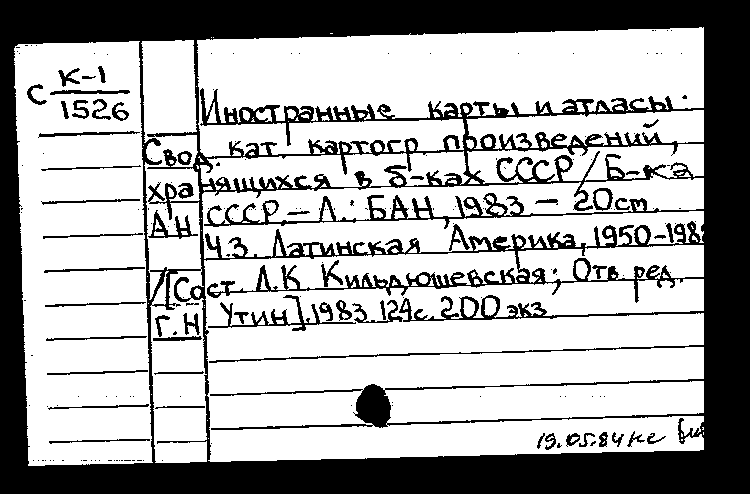 С К-1
1526
Иностранные карты и атласы.
Свод. кат. картогр. произведений,
хранящихся в б-ках СССР / Б-ка
АН СССР. – Л.: БАН, 1983 – 20 cm.
Ч.3. Латинская Америка, 1950-198
/[Сост. Л.К. Кильдюшевская; Отв. ред.
Г.Н. Утин]. 1983. 124с. 200 экз.
19.05.84